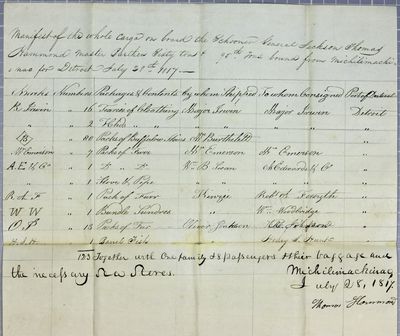 Manifest of the whole cargo on board the Schooner General Jackson Thomas
Hammond master Burthen Fifty tons & 90th tons bound from Michilimacki-
nac for Detroit July 28th 1817.
Marks Numbers Packages & Contents By whom Shipped To whom Consigned Port of
R. Irwin " 16 Trunks of Cloathing Major Irwin Major Irwin Detroit
" " 2
" 80 Packs of Buffaloe Skins Mr Barthelett " "
" 7 Packs of Furr Mr Emerson Mr Emerson "
A. E. & Co " 1 Wm B. Sloan A. Edwards & Co "
" 1 Stove & Pipe " " "
R. A. F " 1 Pack of Furr Robt A. Forsyth "
W W " 1 Bundle Sundries " Wm Woodbridge "
O. J. " 13 Packs of Furr Oliver Johnson "
" 1 Barrel Fish " "
123 Together with One family & 8 passengers & their baggage and
the necessary Sea Stores. Michilimackinac
July 28, 1817.
Thomas Hammond